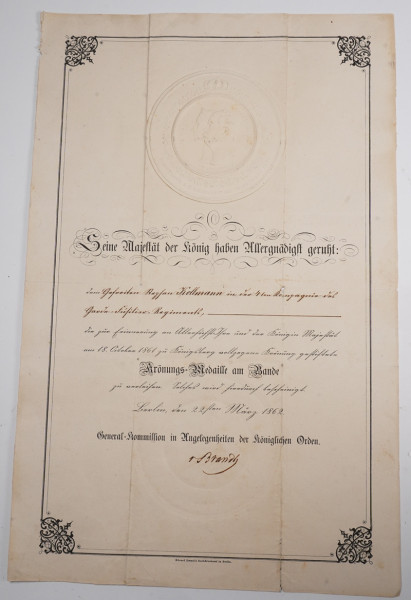 Seine Majestät der König haben Allergnädigst geruht:
dem Gefreiten Kollmann in der 4ten Kompagnie des
Garde-Füsilier-Regiments,
die zur Erinnerung an Allerhöchst-Ihrer und der Königin Majestät
am 18. October 1861 zu Königsberg vollzogene Krönung gestiftete
Krönungs-Medaille am Bande
zu verleihen. Solches wird hierdurch bescheinigt.
Berlin, den 22sten März 1862.
General-Kommission in Angelegenheiten der Königlichen Orden.
v Brandt